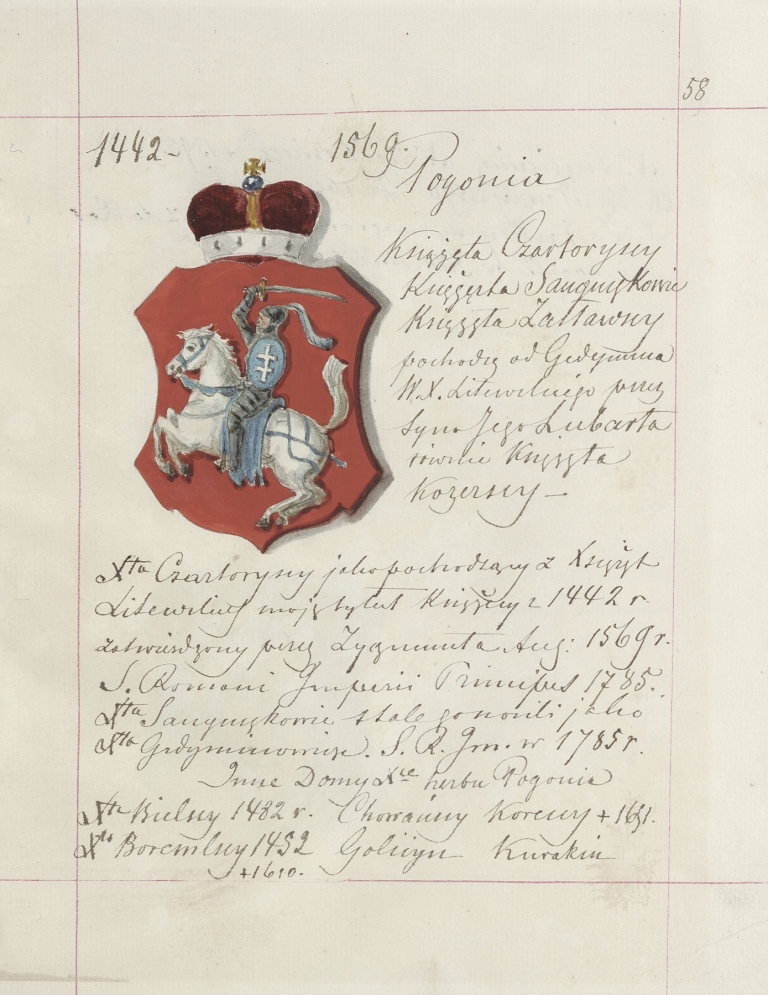 58
1442- 1569.
Pogonia
Książęta Czartoryscy
Książęta Sanguszkowie
Książęta Zasławscy
pochodzą od Gedymina
W.X. Litewskiego przez
syna Jego Lubarta
równie Książęta
Kozerscy —
Xta Czartoryscy jako pochodzący z Książąt
Litewskich mają tytuł Książęcy z 1442 r.
zatwierdzony przez Zygmunta Aug: 1569 r.
S. Romani Imperii Princips 1785.
Xta Sanguszkowie stale go nosili jako
Xta Gedyminowicze. S. R. Im. w 1785 r.
Inne Domy Xce herbu Pogonia
Xta Bielscy 1482 r. Chowańscy Koreccy + 1651.
Xta Boremlscy 1452 Golicyn Kurakin
+1610.